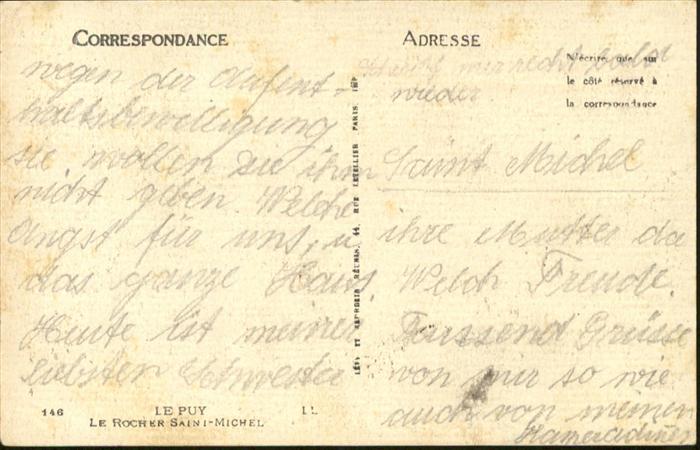 CORRESPONDANCE
wegen der Aufent-
haltsbewilligung
sie wollen sie ihm
nicht geben Welche
Angst für uns, u
das ganze Haus.
Heute ist meiner
liebsten Schwester
146 LE PUY LL
LE ROCHER SAINT-MICHEL
LÉVY ET NEURDEIN RÉUNIS, 44, RUE LETELLIER PARIS IMP
ADRESSE
N'écrire que sur
le côté réservé à
la correspondance
mir recht bald
wieder.
Saint Michel
ihre Mutter da
Welch Freude.
Taussend Grüsse
von mir so wie
auch von meinen
Kameradinen